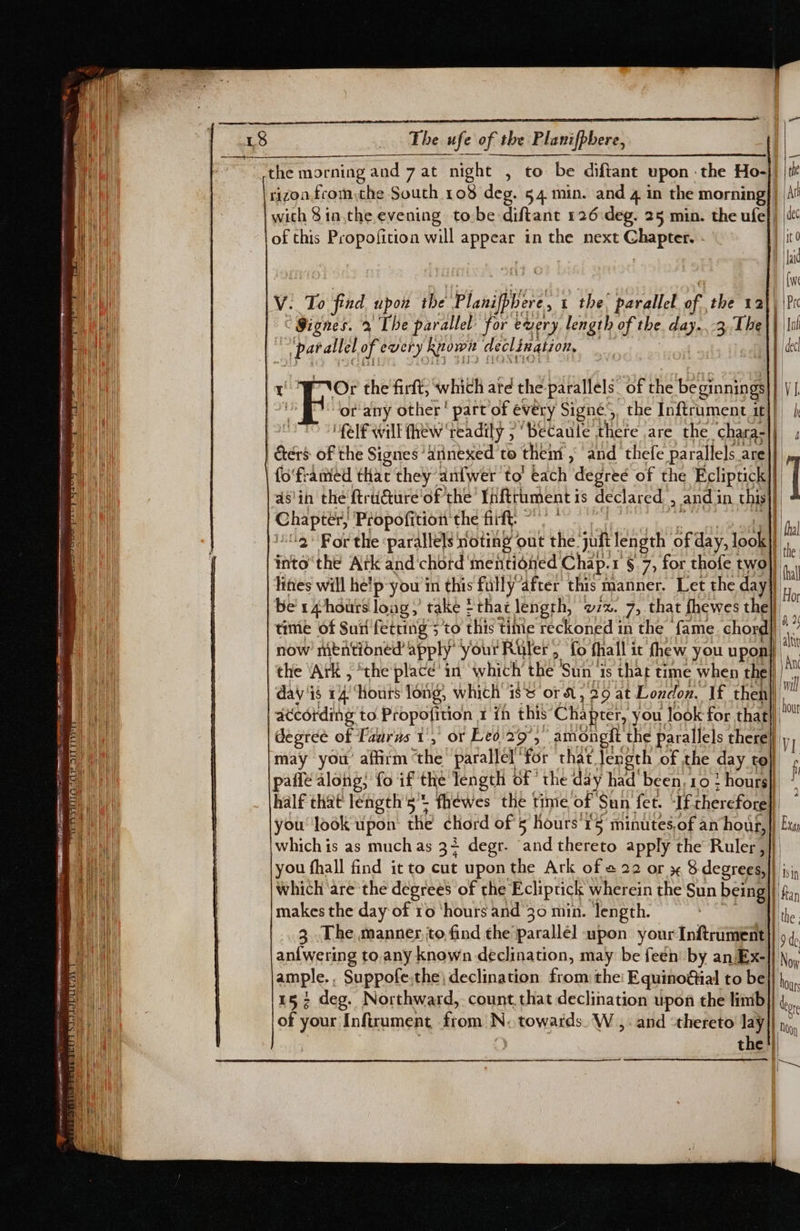 18 The uſe of the Planiſphere,
the morning and 7 at night , to be diſtant upon the Ho-
rizon from the South 108 deg. 54 min. and 4 in the morning
with 8 in the evening to be diſtant 126 deg. 25 min. the uſe
of this Propoſition will appear in the next Chapter.
V. To find upon the Planiſphere, 1 the parallel of the 12
Signes. 2 The parallel for every length of the day. 3. The
parallel of every known declination.
1 FOr the firſt, which are the parallels of the beginnings
or any other part of every Signe, the Inſtrument it
ſelf will ſhew readily ; becauſe there are the chara-
cters of the Signes annexed to them , and theſe parallels are
ſo framed that they anſwer to each degree of the Ecliptick
as in the ſtructure of the Inſtrument is declared , and in this
Chapter, Propoſition the firſt.
2 For the parallels noting out the juſt length of day, look
into the Ark and chord mentioned Chap. 1 § 7, for thoſe two
lines will help you in this fully after this manner. Let the day
be 14 hours long, take ½ that length, viz. 7, that ſhewes the
time of Sun ſetting ; to this time reckoned in the ſame chord
now mentioned apply your Ruler, ſo ſhall it ſhew you upon
the Ark , the place in which the Sun is that time when the
day is 14 hours long, which is ♉ or ♌, 29 at London. If then
according to Propoſition 1 in this Chapter, you look for that
degree of Taurus 1, or Leo 29, amongſt the parallels there
may you affirm the parallel for that length of the day to
paſſe along; ſo if the length of the day had been, 10 ½ hours
half that length 5 ¼ ſhewes the time of Sun ſet. If therefore
you look upon the chord of 5 hours 15 minutes, of an hour,
which is as much as 3¾ degr. and thereto apply the Ruler ,
you ſhall find it to cut upon the Ark of ♒ 22 or ♏ 8 degrees,
which are the degrees of the Ecliptick wherein the Sun being
makes the day of 10 hours and 30 min. length.
3 The manner to find the parallel upon your Inſtrument
anſwering to any known declination, may be ſeen by an Ex-
ample. Suppoſe the declination from the Equinoctial to be
15 ½ deg. Northward, count that declination upon the limb
of your Inſtrument from N. towards W, and thereto lay
the